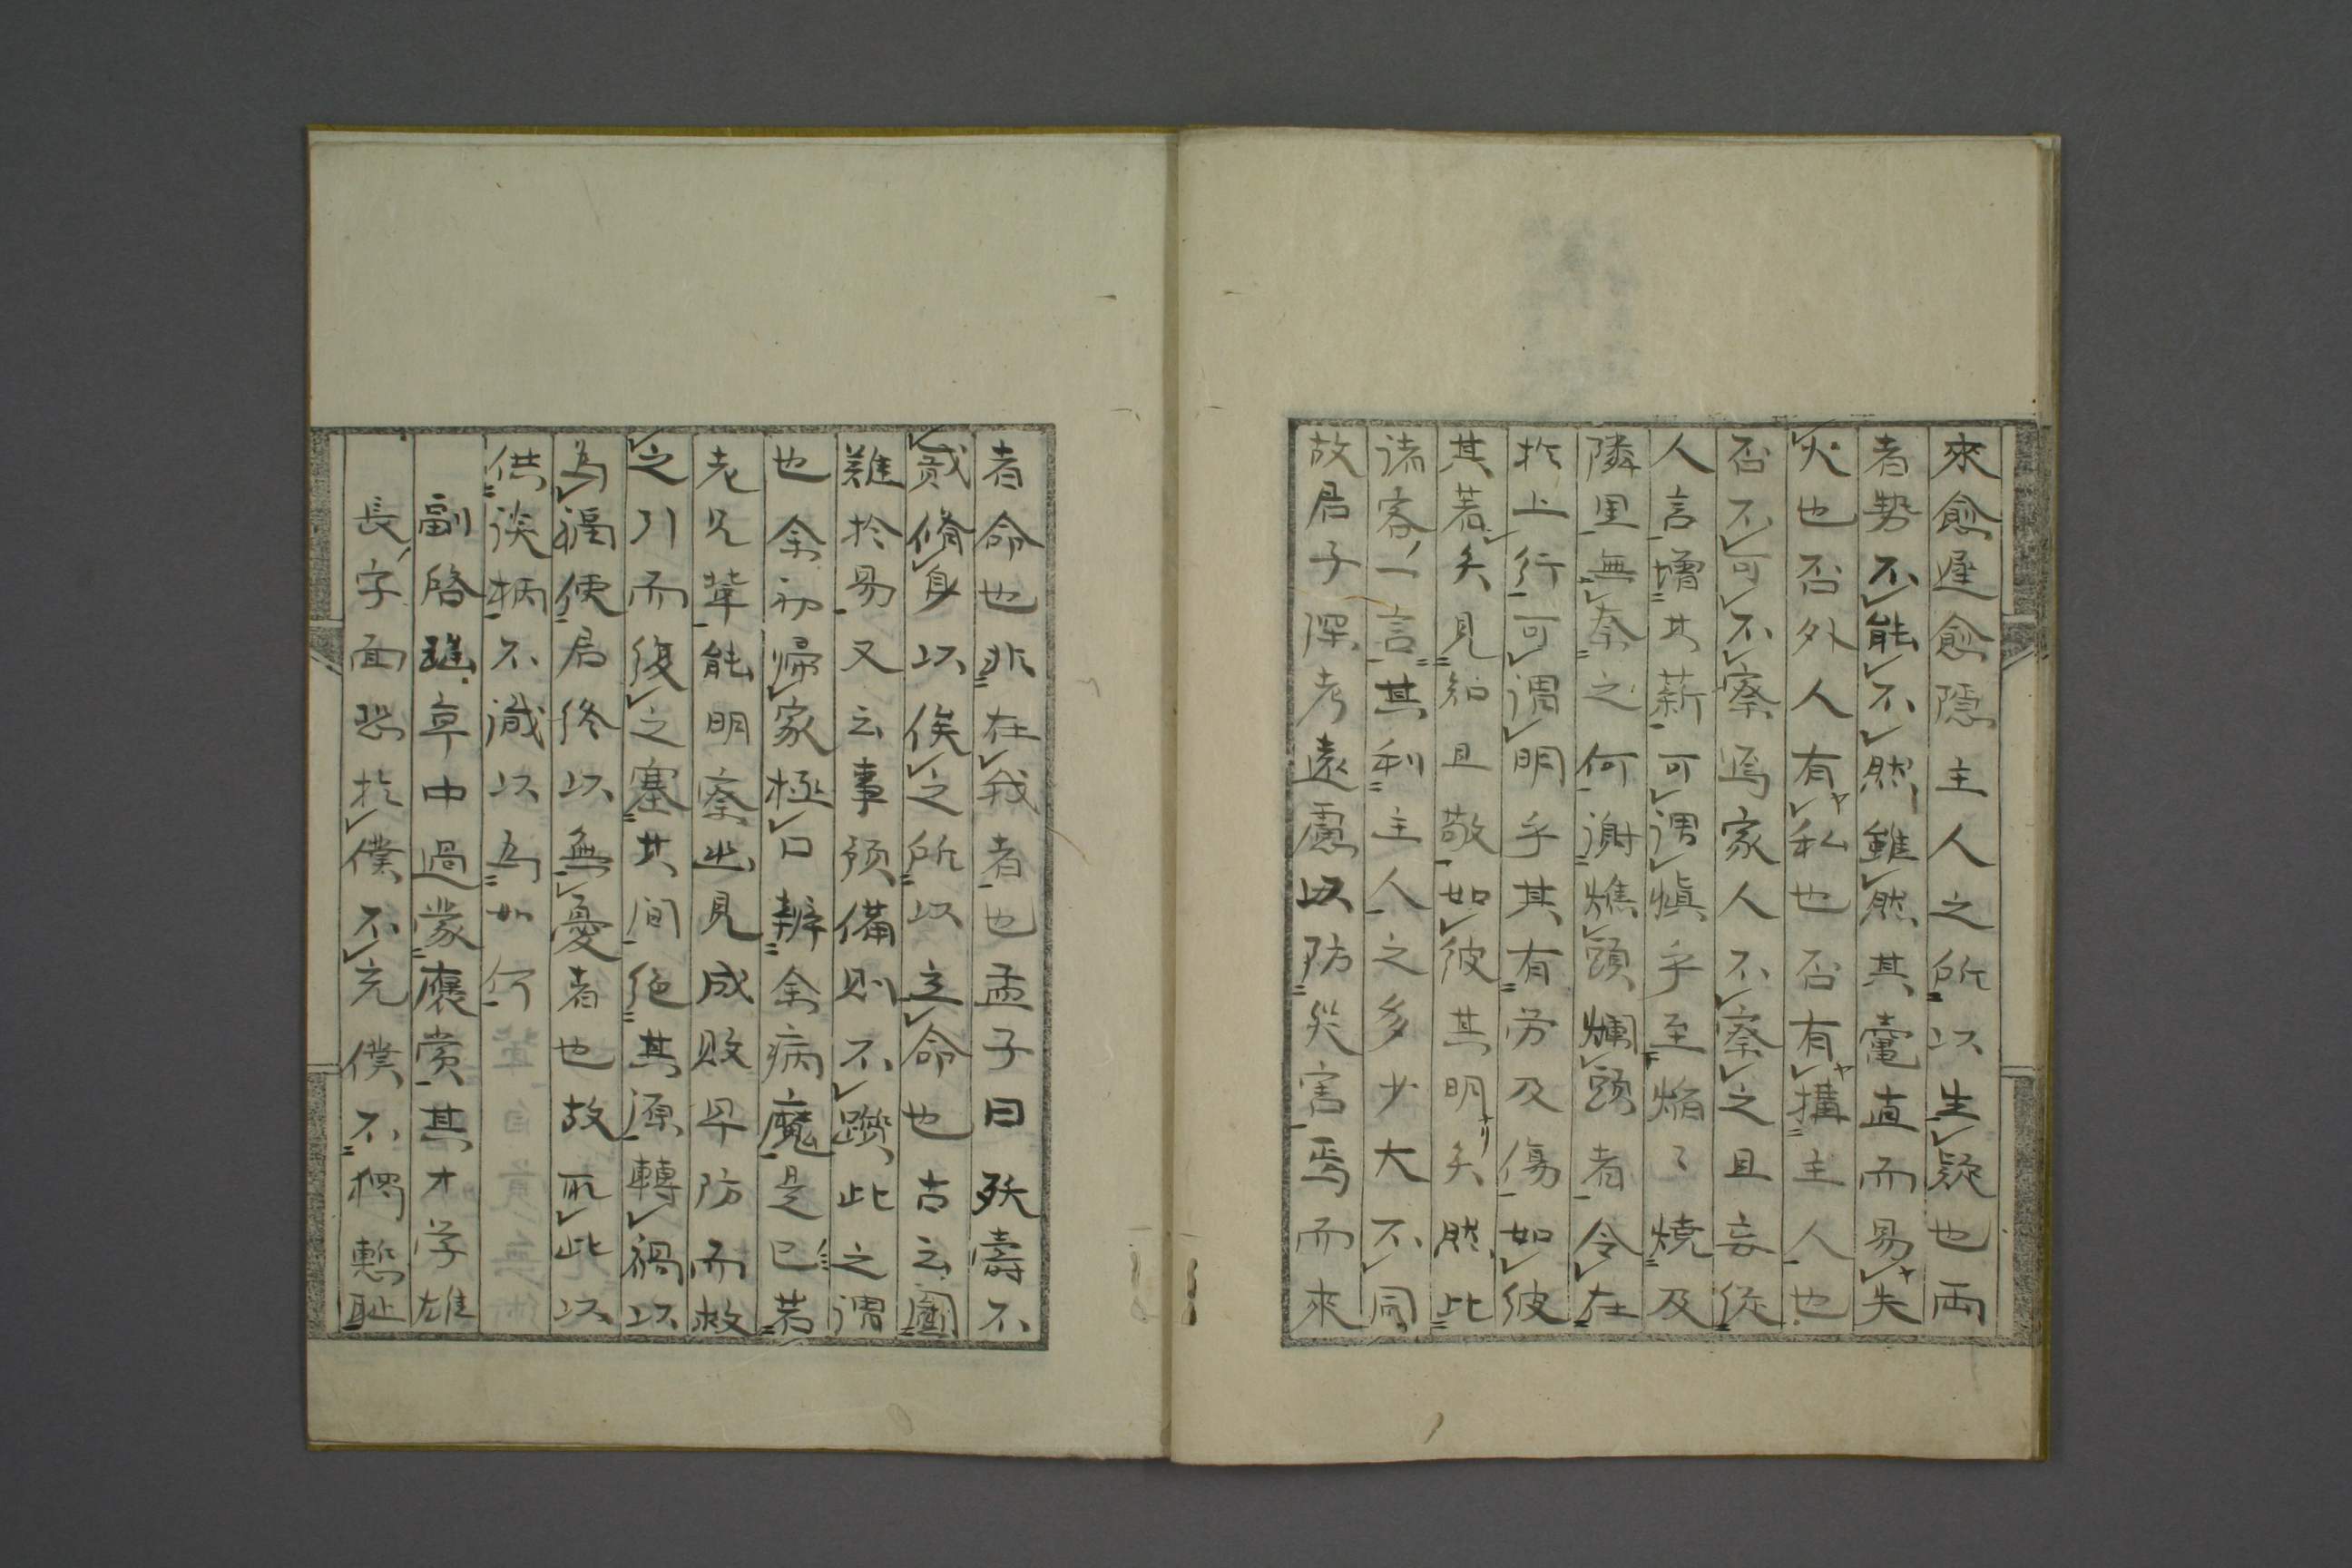 來愈遅愈隠主人之所以生疑也両
者勢不能不然雖然其竈直而易失
火也否外人有私也否有搆主人也
否不可不察焉家人不察之且妄従
人言増其薪可謂慎乎至焔々焼及
隣里無奈之何謝燋頭爛頭者令在
於上行可謂明乎其有労及傷如彼
其若矣見知且敬如彼其明矣然此
諸客一言其利主人之多少大不同
故君子深考遠慮以防災害焉而來
者命也非在我者也孟子曰殀壽不
貮脩身以俟之所以立命也古云圖
難於易又云事預備則不躓此之謂
也余初帰家極口辨余病魔是已若
老兄輩能明察此見成敗早防而救
之引而復之塞其间絶其源轉禍以
為福使君終以無憂者也故取此以
供談柄不識以為如何
副啓雖草中過蒙褒賞其才学雄
長字面恐於僕不充僕不獨慙耻